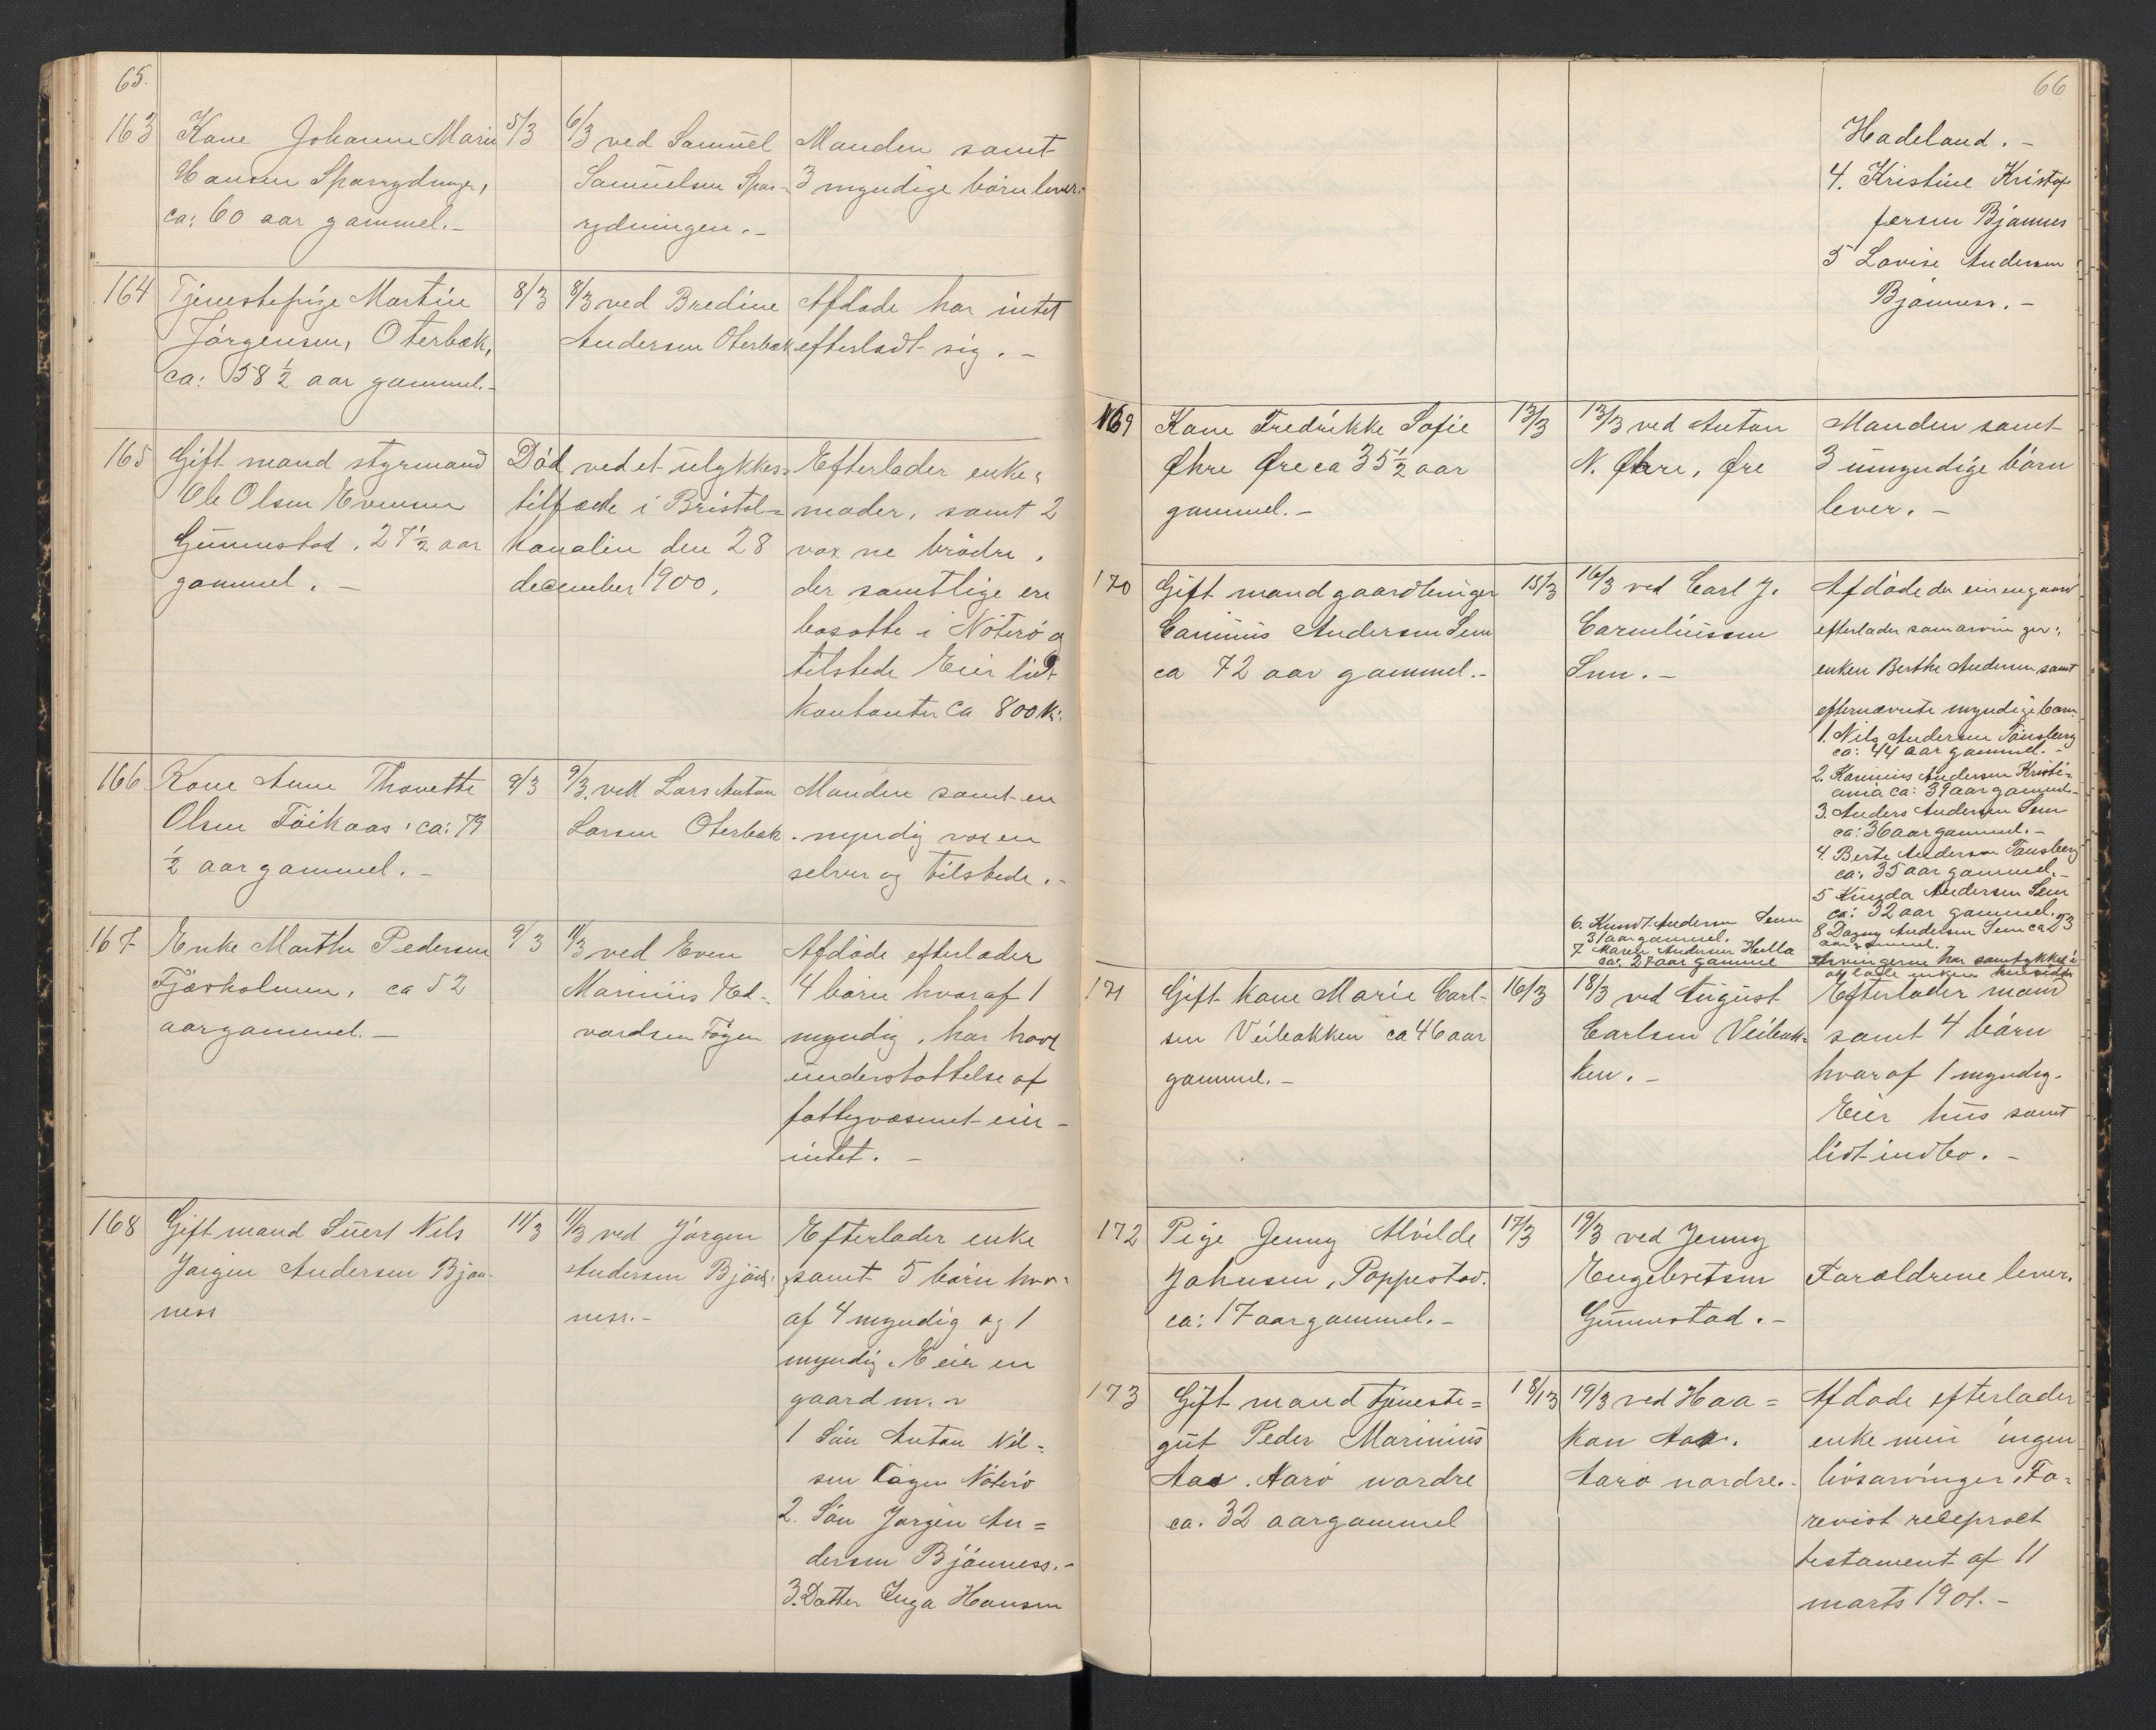 65.
163 Kone Johanne Marie 5/3 6/3 ved Samuel Manden samt
Hansen Sparrydningen, Samuelsen Spar- 3 myndige börn lever.
ca: 60 aar gammel.- rydningen.-
164 Tjenestepige Martine 8/3 8/3 ved Bredine Afdöde har intet
Jörgensen, Oterbæk, Andersen Oterbæk efterladt sig. -
ca: 58 ½ aar gammel.-
165 Gift mand styrmand Död ved et ulykkes- Efterlader enke,
Ole Olsen Evensen tilfælde i Bristol- moder, samt 2
Gunnestad. 27 ½ aar kanalen den 28 vox ne brödre.
gammel. - december 1900. der samtlige ere
bosatte i Nöterö og
tilstede Eier lidt
kontanter ca 800 kr.
166 Kone Anne Thovette 9/3 9/3. ved Lars Anton Manden samt en
Olsen Föikaas, ca: 79 Larsen Oterbæk. myndig voxen
½ aar gammel. - selver og tilstede. -
167 Enke Marthe Pedersen 9/3 11/3 ved Even Afdöde efterlader
Fjærholmen, ca 52 Marinius Ed- 4 börn hvoraf 1
aar gammel. - vardsen Tögen myndig, har havt
understöttelse af
fattigvæsenet eier -
intet. -
168 Gift mand Suert Nils 11/3 11/3 ved Jörgen Efterlader enke
Jörgen Andersen Bjön- Andersen Bjön- samt 5 börn hvor-
ness ness.- af 4 myndig og 1
myndig. Eier en
gaard m. v
1 Sön Anton Nil-
sen Tögen Nöterö
2. Sön Jörgen An=
dersen Bjönness.-
3. Datter Inga Hansen
66
Hadeland. -
4. Kristine Kristof-
fersen Bjönnes
5 Lovise Andersen
Bjönness. -
169 Kone Fredrikke Sofie 13/3 13/3 ved Anton Manden samt
Øhre Øre ca 35 ½ aar N. Øhre, Øre 3 umyndige börn
gammel. - lever. -
170 Gift mand gaardbruger 15/3 16/3 ved Carl J. Afdöde der eier en gaard
Carinius Andersen Sem Corneliussen efterlader som arvinger:
ca 72 aar gammel. - Sem. - enken Berthe Andersen samt
efternævnte myndige börn
1. Nils Andersen Tönsberg
ca: 44 aar gammel. -
2. Karinius Andersen Kristi=
ania ca: 39 aar gammel-
3. Anders Andersen Sem
ca: 36 aar gammel. -
4. Berte Andersen Tönsberg
ca: 35 aar gammel. -
5 Andersen Sem
ca: 32 aar gammel.
6. Knud Andersen Sem
31 aar gammel.
7 Maren Andersen Hella
ca. 27 aar gammel
8 Dagny Andersen Sem ca 23
aar gammel.
Arvingerne har samtykket i
at lade enken hensidde
171 Gift kone Marie Carl- 16/3 18/3 ved August Efterlader mand
sen Veibakken ca 46 aar Carlsen Veibak- samt 4 börn
gammel. - ken. - hvoraf 1 myndig.
Eier hus samt
lidt indbo. -
172 Pige Jenny Alvilde 17/3 19/3 ved Jenny
Johnsen, Poppestad. Engebretsen Foreldrene lever.
ca: 17 aar gammel. - Gunnestad. -
173 Gift mand tjeneste= 18/3 19/3 ved Haa= Afdöde efterlader
gut Peder Marinius kon Aas. enke men ingen
Aas. Aarö nordre Aarö nordre.- livsarvinger. Fo-
ca. 32 aar gammel revist reciproct
testament af 11
marts 1901. -